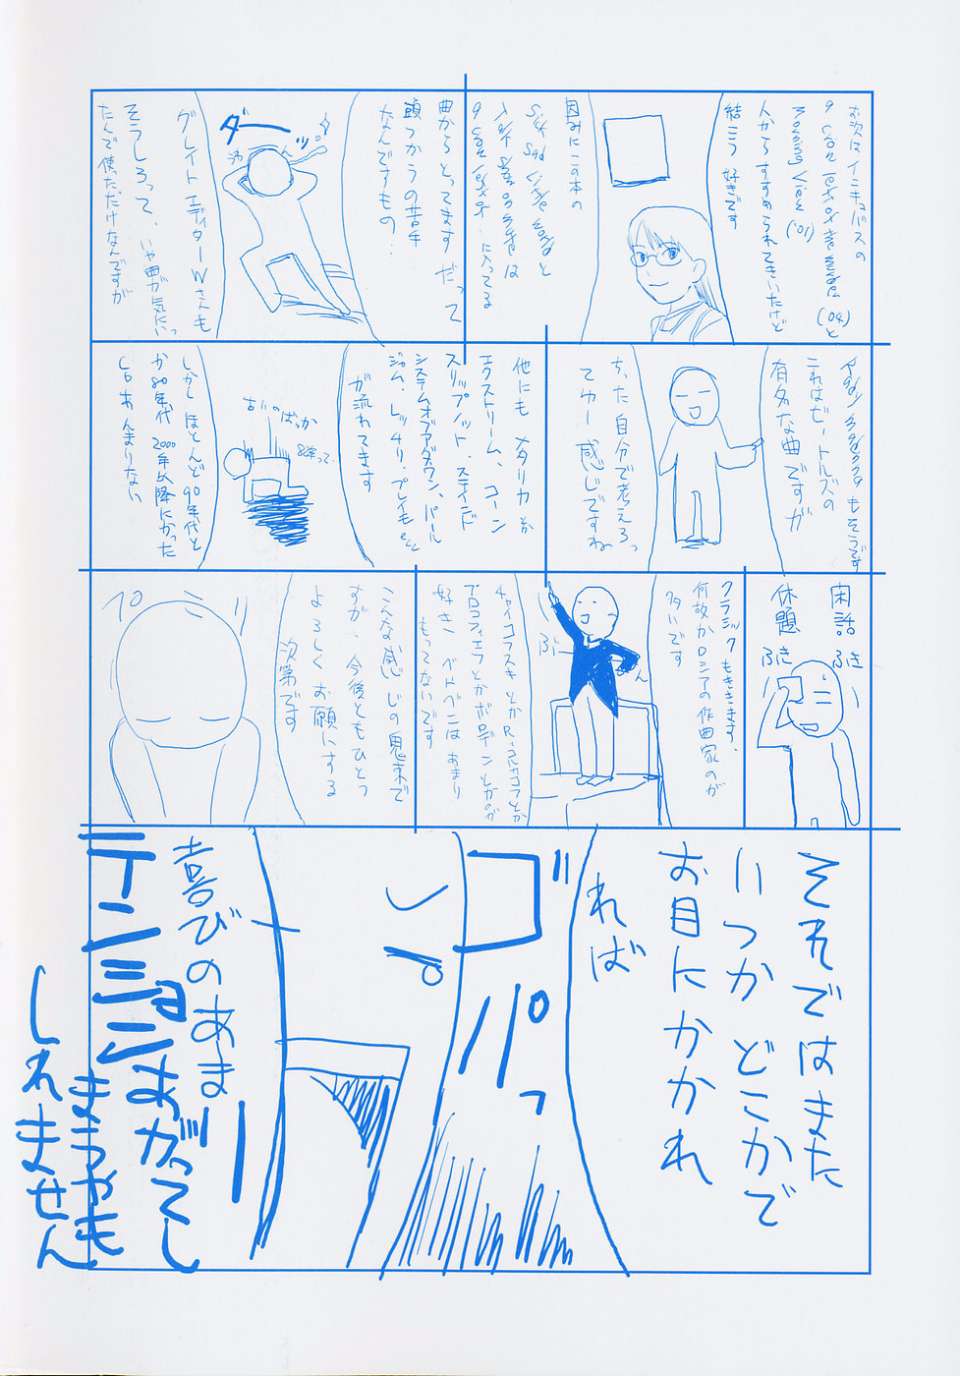 お次はインキュバスの
と
('04)
('01)
人からすすめられてきいたけど
結こう好きです
因みにこの本の
と
は
に入ってる
曲からとってます だって
頭つかうの苦手
なんですもの.
ダーッ
グレイト エディターWさんも
そうしろって、いや曲が気にいっ
たんで使ただけなんですが
もそうです
これはビートルズの
有名な曲ですが
ちった自分で考えろっ
てゆー感じですね
他にも メタリカ か
エクストリーム、コーン
スリップノット、ステインド
システムオブアダウン、パール
ジャム、レッチリ、プレイモetc
が流れてます
古いのばっか
しかし ほとんど90年代と
か80年代 2000年以降になった
らあんまりない
閑話
休題
ふき
ふき
クラシックもききます.
何故かロシアの作曲家のが
多いです
チャイコフスキとかR・コルサコフとか
プロコフィエフとかボロディンとかのが
好き、ベトベンはあまり
もってないです
こんな感じの鬼末で
すが、今後ともひとつ
よろしくお願いする
次第です
ペコリ
それではまた
いつか どこかで
お目にかかれ
れば
ガパっ
喜びのあまり
テンションあがってし
まうやも
しれません